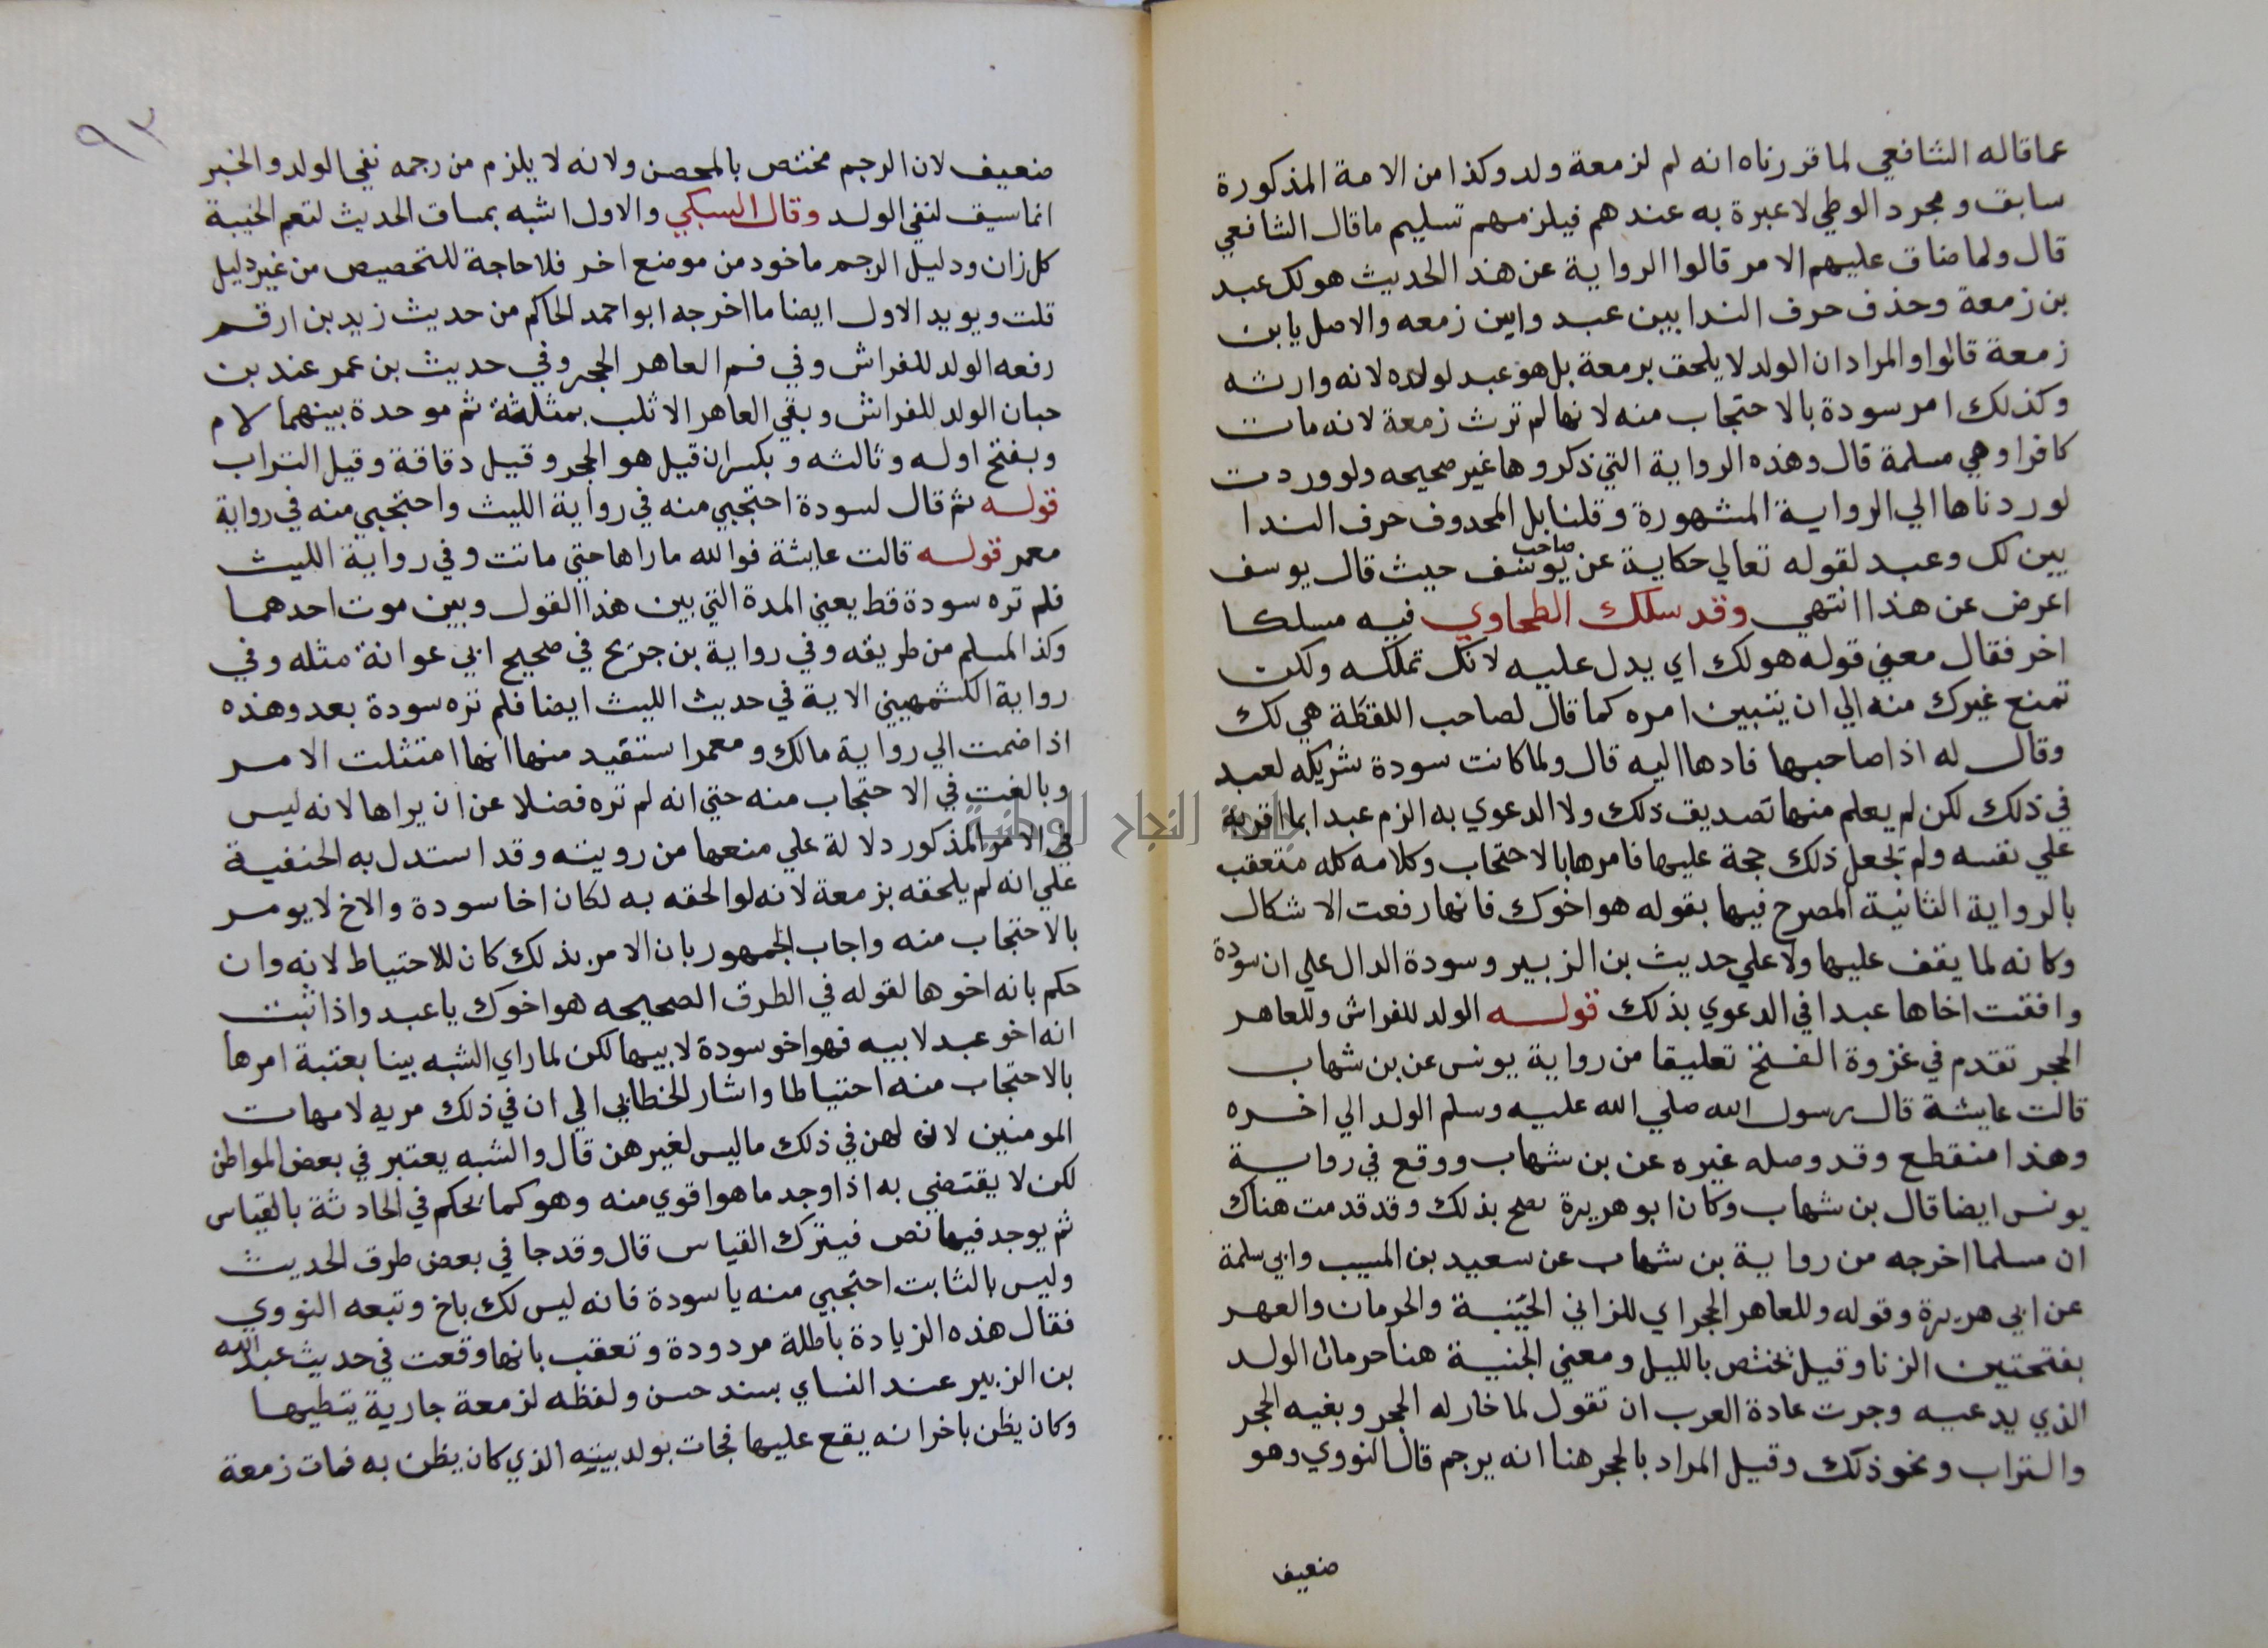 عما قاله الشافعي لما قررناه انه لم لزمعة ولد وكذا من الامة المذكورة
سابق ومجرد الوطي لا عبرة به عندهم فيلزمهم تسليم ما قال الشافعي
قال ولما ضاق عليهم الامر قالوا الرواية عن هذا الحديث هو لك عبد
بن زمعة وحذف حرف الندا بين عبد وابن زمعه والاصل يا بن
زمعة قالوا والمراد ان الولد لا يلحق بزمعة بل هو عبد لولده لانه وارثه
وكذلك امر سودة بالاحتجاب منه لانها لم ترث زمعة لانه مات
كافرا وهي مسلمة قال وهذه الرواية التي ذكروها غير صحيحه ولو وردت
لورددناها الي الرواية المشهورة وقلنا بل المحدوف حرف الندا
بين لك وعبد لقوله تعالي حكاية عن صاحب يوسف حيث قال يوسف
اعرض عن هذا انتهي وقد سلك الطحاوي فيه مسلكا
اخر فقال معني قوله هو لك اي يدل عليه لا انك تملكه ولكن
تمنع غيرك منه الي ان يتبين امره كما قال لصاحب اللقطة هي لك
وقال له اذا صاحبها فادها اليه قال ولما كانت سودة شريكه لعبد
في ذلك لكن لم يعلم منها تصديق ذلك ولا الدعوي به الزم عبدا بما اقر به
علي نفسه ولم يجعل ذلك حجة عليها فامرها بالاحتجاب وكلامه كله متعقب
بالرواية الثانية المصرح فيها بقوله هو اخوك فانها رفعت الاشكال
وكانه لما يقف عليها ولا علي حديث بن الزبير وسودة الدال علي ان سودة
وافقت اخاها عبدا في الدعوي بذلك قوله الولد للفراش وللعاهر
الحجر تقدم في غزوة الفتح تعليقا من رواية يونس عن بن شهاب
قالت عايشة قال رسول الله صلي الله عليه وسلم الولد الي اخره
وهذا منقطع وقد وصله غيره عن بن شهاب ووقع في رواية
يونس ايضا قال بن شهاب وكان ابو هريرة يصح بذلك وقد قدمت هناك
ان مسلما اخرجه من رواية بن شهاب عن سعيد بن المسيب وابي سلمة
عن ابي هريرة وقوله وللعاهر الحجر اي للزاني الخيبة والحرمان والعهر
بفتحتين الزنا وقيل يختص بالليل ومعني الخيبة هنا حرمان الولد
الذي يدعيه وجرت عادة العرب ان تقول لما خار له الحجر وبفيه الحجر
والتراب ونحو ذلك وقيل المراد بالحجر هنا انه يرجم قال النووي وهو
ضعيف
٩٣
ضعيف لان الرجم مختص بالمحصن ولانه لا يلزم من رجمه نفي الولد والخبر
انما سيق لنفي الولد وقال السبكي والاول اشبه بمساق الحديث لتعم الخيبة
كل زان ودليل الرجم ماخود من موضع اخر فلا حاجة للتخصيص من غير دليل
قلت ويويد الاول ايضا ما اخرجه ابو احمد الحاكم من حديث زيد بن ارقم
رفعه الولد للفراش وفي فم العاهر الحجر وفي حديث بن عمر عند بن
حبان الولد للفراش وبفي العاهر الاثلب بمثلثة ثم موحدة بينهما لام
وبفتح اوله وثالثه وبكسران قيل هو الحجر وقيل دقاقة وقيل التراب
قوله ثم قال لسودة احتجبي منه في رواية الليث واحتجبي منه في رواية
معمر قوله قالت عايشة فوالله ما راها حتي ماتت وفي رواية الليث
فلم تره سودة قط يعني المدة التي بين هذا القول وبين موت احدهما
وكذا لمسلم من طريقه وفي رواية بن جريح في صحيح ابي عوانة مثله وفي
رواية الكشمهيني الاية في حديث الليث ايضا فلم تره سودة بعد وهذه
اذا ضمت الي رواية مالك ومعمر استفيد منها انها امتثلت الامر
وبالغت في الاحتجاب منه حتي انه لم تره فضلا عن ان يراها لانه ليس
في الامر المذكور دلالة علي منعها من رويته وقد استدل به الحنفية
علي انه لم يلحقه بزمعة لانه لو الحقه به لكان اخا سودة والاخ لا يومر
بالاحتجاب منه واجاب الجمهور بان الامر بذلك كان للاحتياط لانه وان
حكم بانه اخوها لقوله في الطرق الصحيحه هو اخوك يا عبد واذا ثبت
انه اخو عبد لابيه فهو اخو سودة لابيها لكن لما راي الشبه بينا بعتبة امرها
بالاحتجاب منه احتياطا واشار الخطابي الي ان في ذلك مريه لامهات
المومنين لان لهن في ذلك ما ليس لغيرهن قال والشبه يعتبر في بعض المواطن
لكن لا يقتضي به اذا وجد ما هو اقوي منه وهو كما يحكم في الحادثة بالقياس
ثم يوجد فيها نص فيترك القياس قال وقد جا في بعض طرق الحديث
وليس بالثابت احتجبي منه يا سودة فانه ليس لك باخ وتبعه النووي
فقال هذه الزيادة باطلة مردودة وتعقب بانها وقعت في حديث عبد الله
بن الزبير عند النساي بسند حسن ولفظه لزمعة جارية يتطيها
وكان يظن باخر انه يقع عليها فجات بولد يشبه الذي كان يظن به فمات زمعة
جامعة النجاح الوطنية